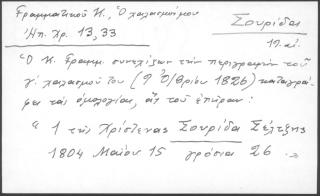 Γραμματικοῦ Κ., Ὁ χαλασμός μου
Σουρίδα
Ἠπ. Χρ. 13, 33
19. αἰ.
"Ὁ Κ. Γραμμ. συνεχίζων τὴν περιγραφὴν τοῦ
γ΄ χαλασμοῦ του (9 Ὀ/βρίου 1826) καταγρά-
φει τὰς ὁμολογίας, ἃς τοῦ ἐπῆραν:
"1 τῆς Χρίστενας Σουρίδα Σέλτζης
1804 Μαΐου 15 γρόσια 26